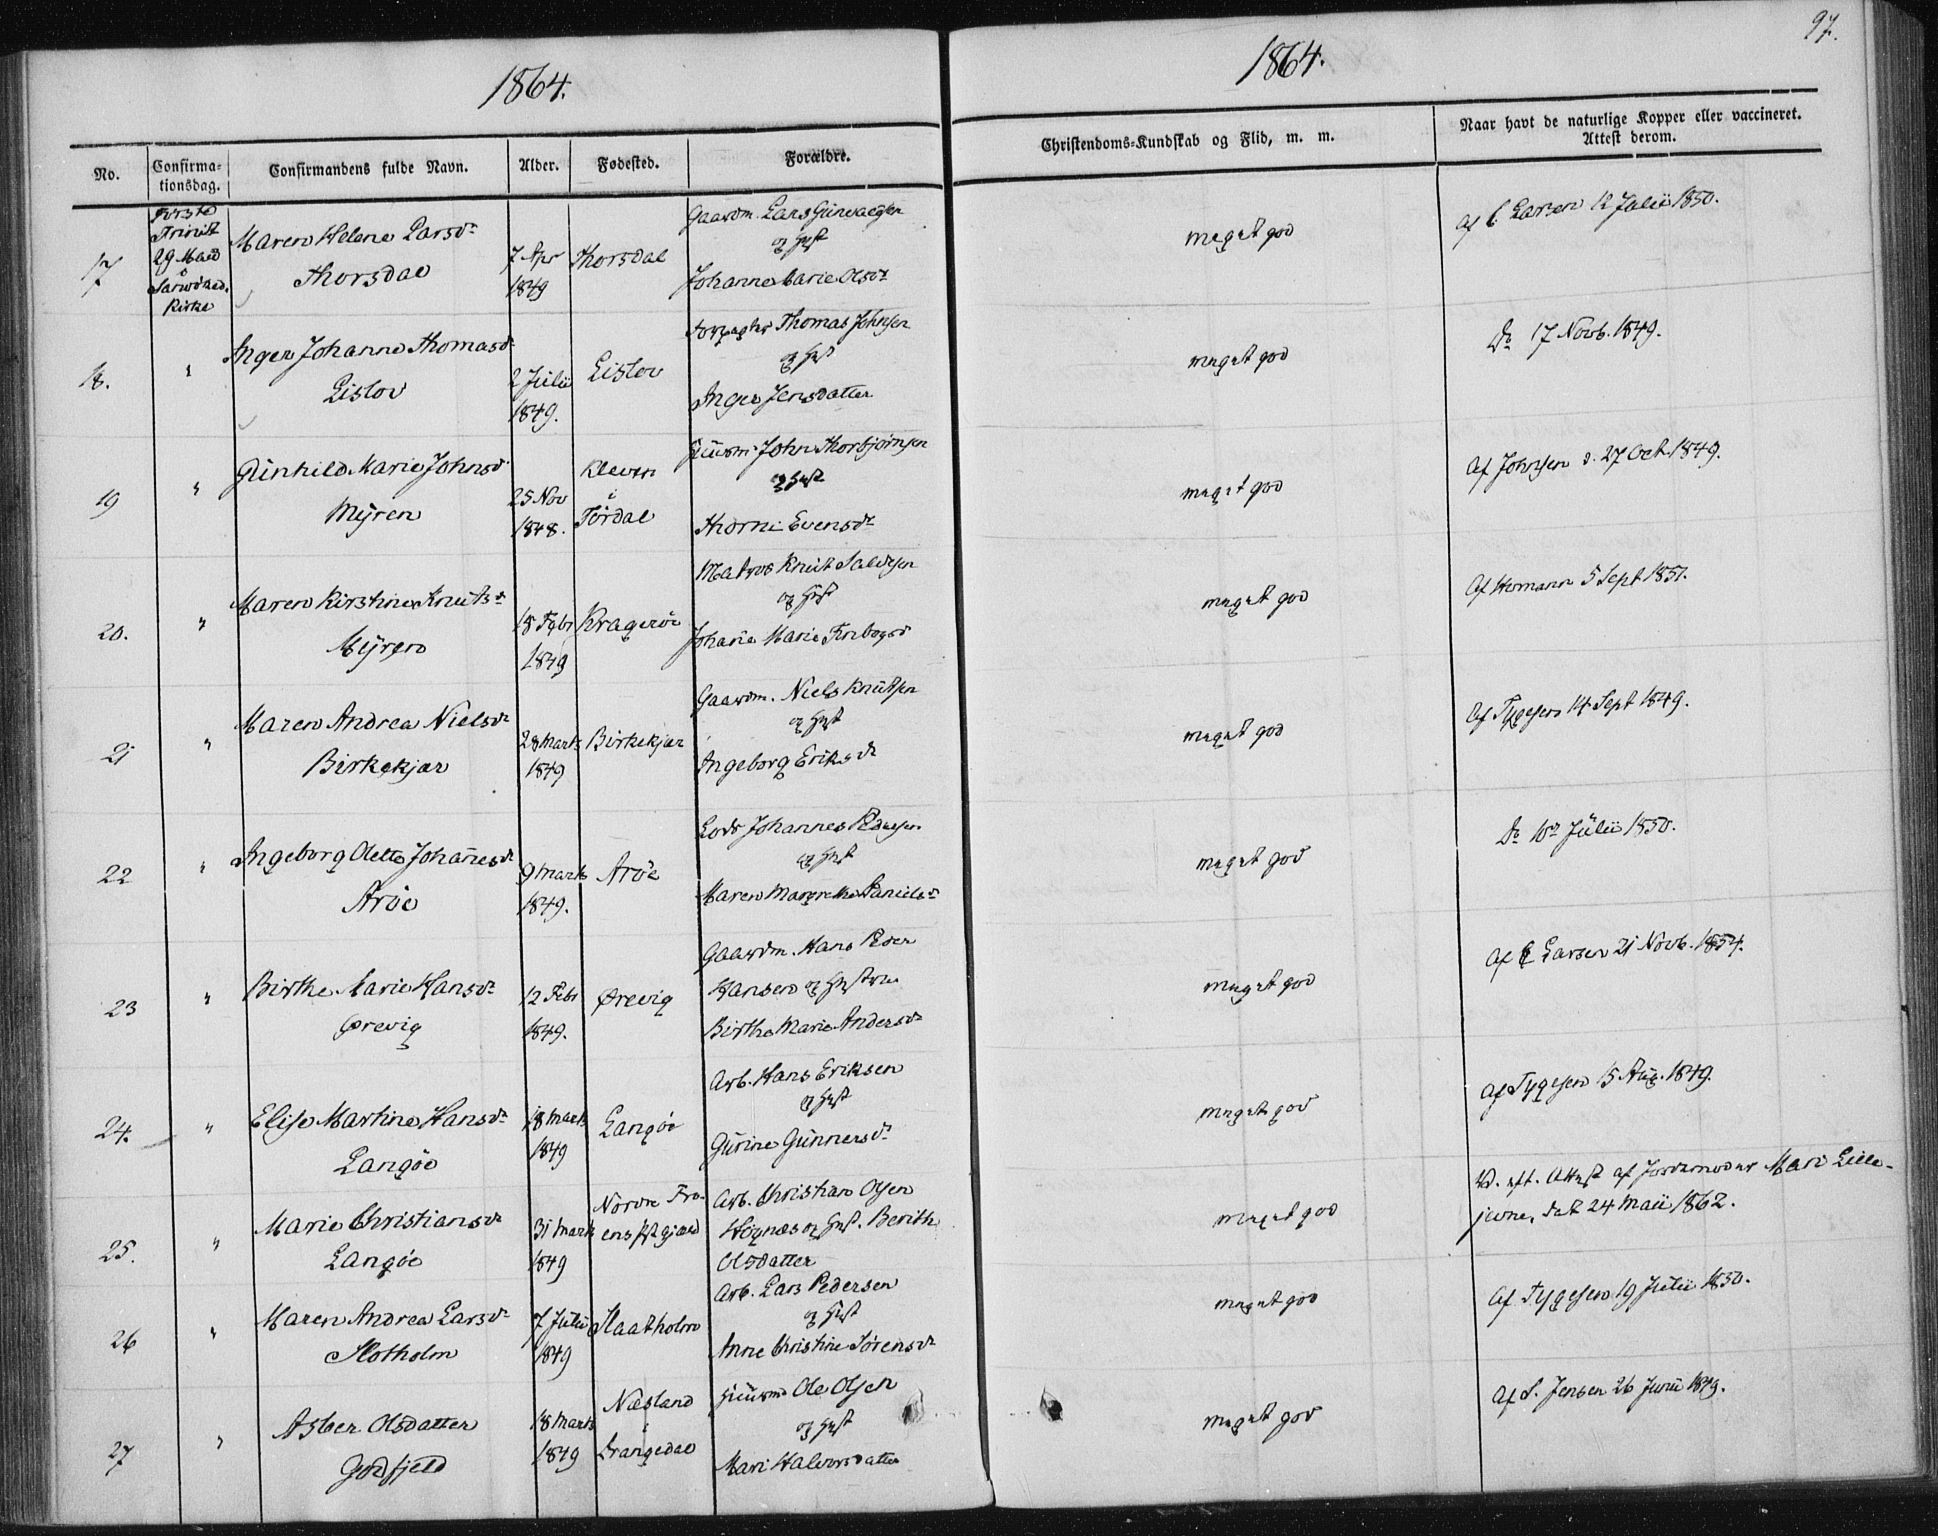 1864.
1864.
97.
No.
Confirma-
tionsdag.
Confirmandens fulde Navn.
Alder.
Fødested.
Forældre.
Christendoms-Kundskab og Flid, m. m.
Naar havt de naturlige Kopper eller vaccineret.
Attest derom.
17
Første
Trinit
29 Maii
i
Kirke
Maren Helene Larsdr
Thorsdal
7 Apr
1849
Thorsdal
Gaardm. Lars
og Hust
Johanne Marie Olsdr
meget god
Af C. Larsen 12 Julii 1850.
18.
"
Inger Johanne Thomasdr
Lislov
2 Julii
1849.
Lislov
Forpagter Thomas Johnsen
og Hust
Inger Jensdatter
meget god
Do 17 Novb. 1849.
19
"
Gunhild Marie Johnsd
Myren
25 Nov
1848.
Kleven
i
Tørdal
Huusm John Thorbjørnsen
og Hust
Thorni Evensdr
meget god
Af Johnsen d. 27 Oct 1849.
20.
"
Maren Kirstine Knutsdr
Myren
18 Febr
1849
Kragerøe
Matros Knut Salvesen
og Hust
Johane Marie
meget god
Af Homann 5 Sept 1851.
21
"
Maren Andrea Nielsdr
Birkekjær
28 Marts
1849
Birkekjær
Gaardm. Niels Knutsen
og Hust
Ingeborg Eriksdr
meget god
Af Tygesen 14 Sept 1849.
22
"
Ingeborg Olette Johanesdr
Arøe
9 Marts
1849.
Arøe
Lods Johannes Pedersen
og Hust
Maren Margrethe Danielsdr
meget god
Do 10de Julii 1850.
23
"
Birthe Marie Hansdr
Ørevig
12 Febr
1849.
Ørevig
Gaardm. Hans Peder
Hansen og Hustrue
Birthe Marie Andersdr
meget god
Af C Larsen 21 Novb. 1854.
24.
"
Elise Martine Hansdr
Langøe
18 Marts
1849
Langøe
Arb. Hans Eriksen
og Hust
Gurine Gunnersdr
meget god
Af Tygesen 15 Aug. 1849.
25.
"
Marie Christiansdr
Langøe
31 Marts
1849
Nordre
Arb. Christian Olsen
og Hust. Berith
Olsdatter
meget god
Vd. eft. Attest af Jordemoder Mari Lille-
dat 24 Maii 1862.
26
"
Maren Andrea Larsdr
Slotholm
7 Julii
1849
Slaatholm
Arb. Lars Pedersen
og Hust
Anne Christine Sørensdr
meget god
Af Tygesen 19 Julii 1850.
27
"
Asber Olsdatter
Godfjeld
18 Marts
1849
Næsland
i
Drangedal
Huusmd Ole Olsen
og Hust
Mari Halvorsdatter
meget god
Af S. Jensen 26 Junii 1849.